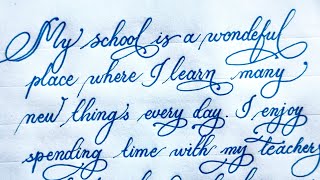 My school is a wondeful
place where I learn many
new things every day. I enjoy
spending time with my teachers